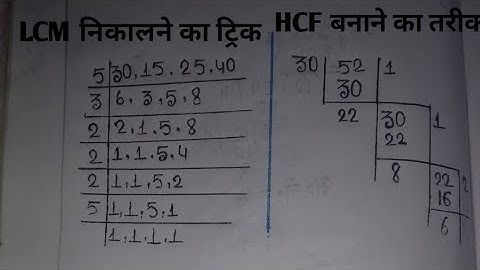 LCM निकालने का ट्रिक
HCF बनाने का तरीक
5 30, 15, 25, 40
3 6, 3, 5, 8
2 2, 1, 5, 8
2 1, 1, 5, 4
2 1, 1, 5, 2
5 1, 1, 5, 1
1, 1, 1, 1
30 52 1
30
22 30 1
22
8 22 2
16
6